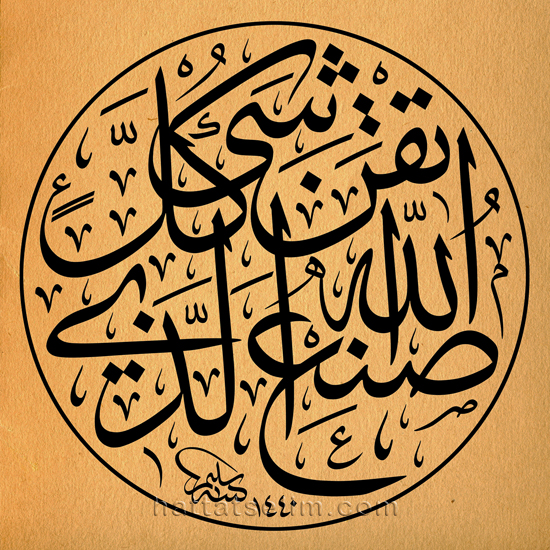 صنع الله الذي أتقن كل شيء
كتبه سليم
١٤٤٠
hattatselim.com